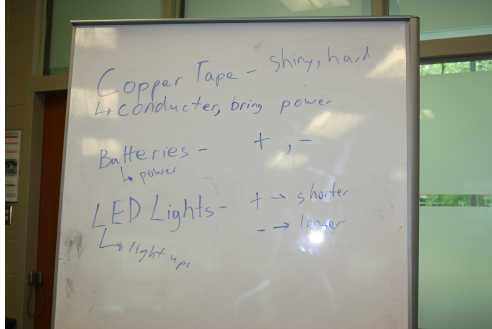 Copper Tape - shiny, hard
↳ conducter, bring power
Batteries - + , -
↳ power
LED Lights - + → shorter
- → longer
↳ light up